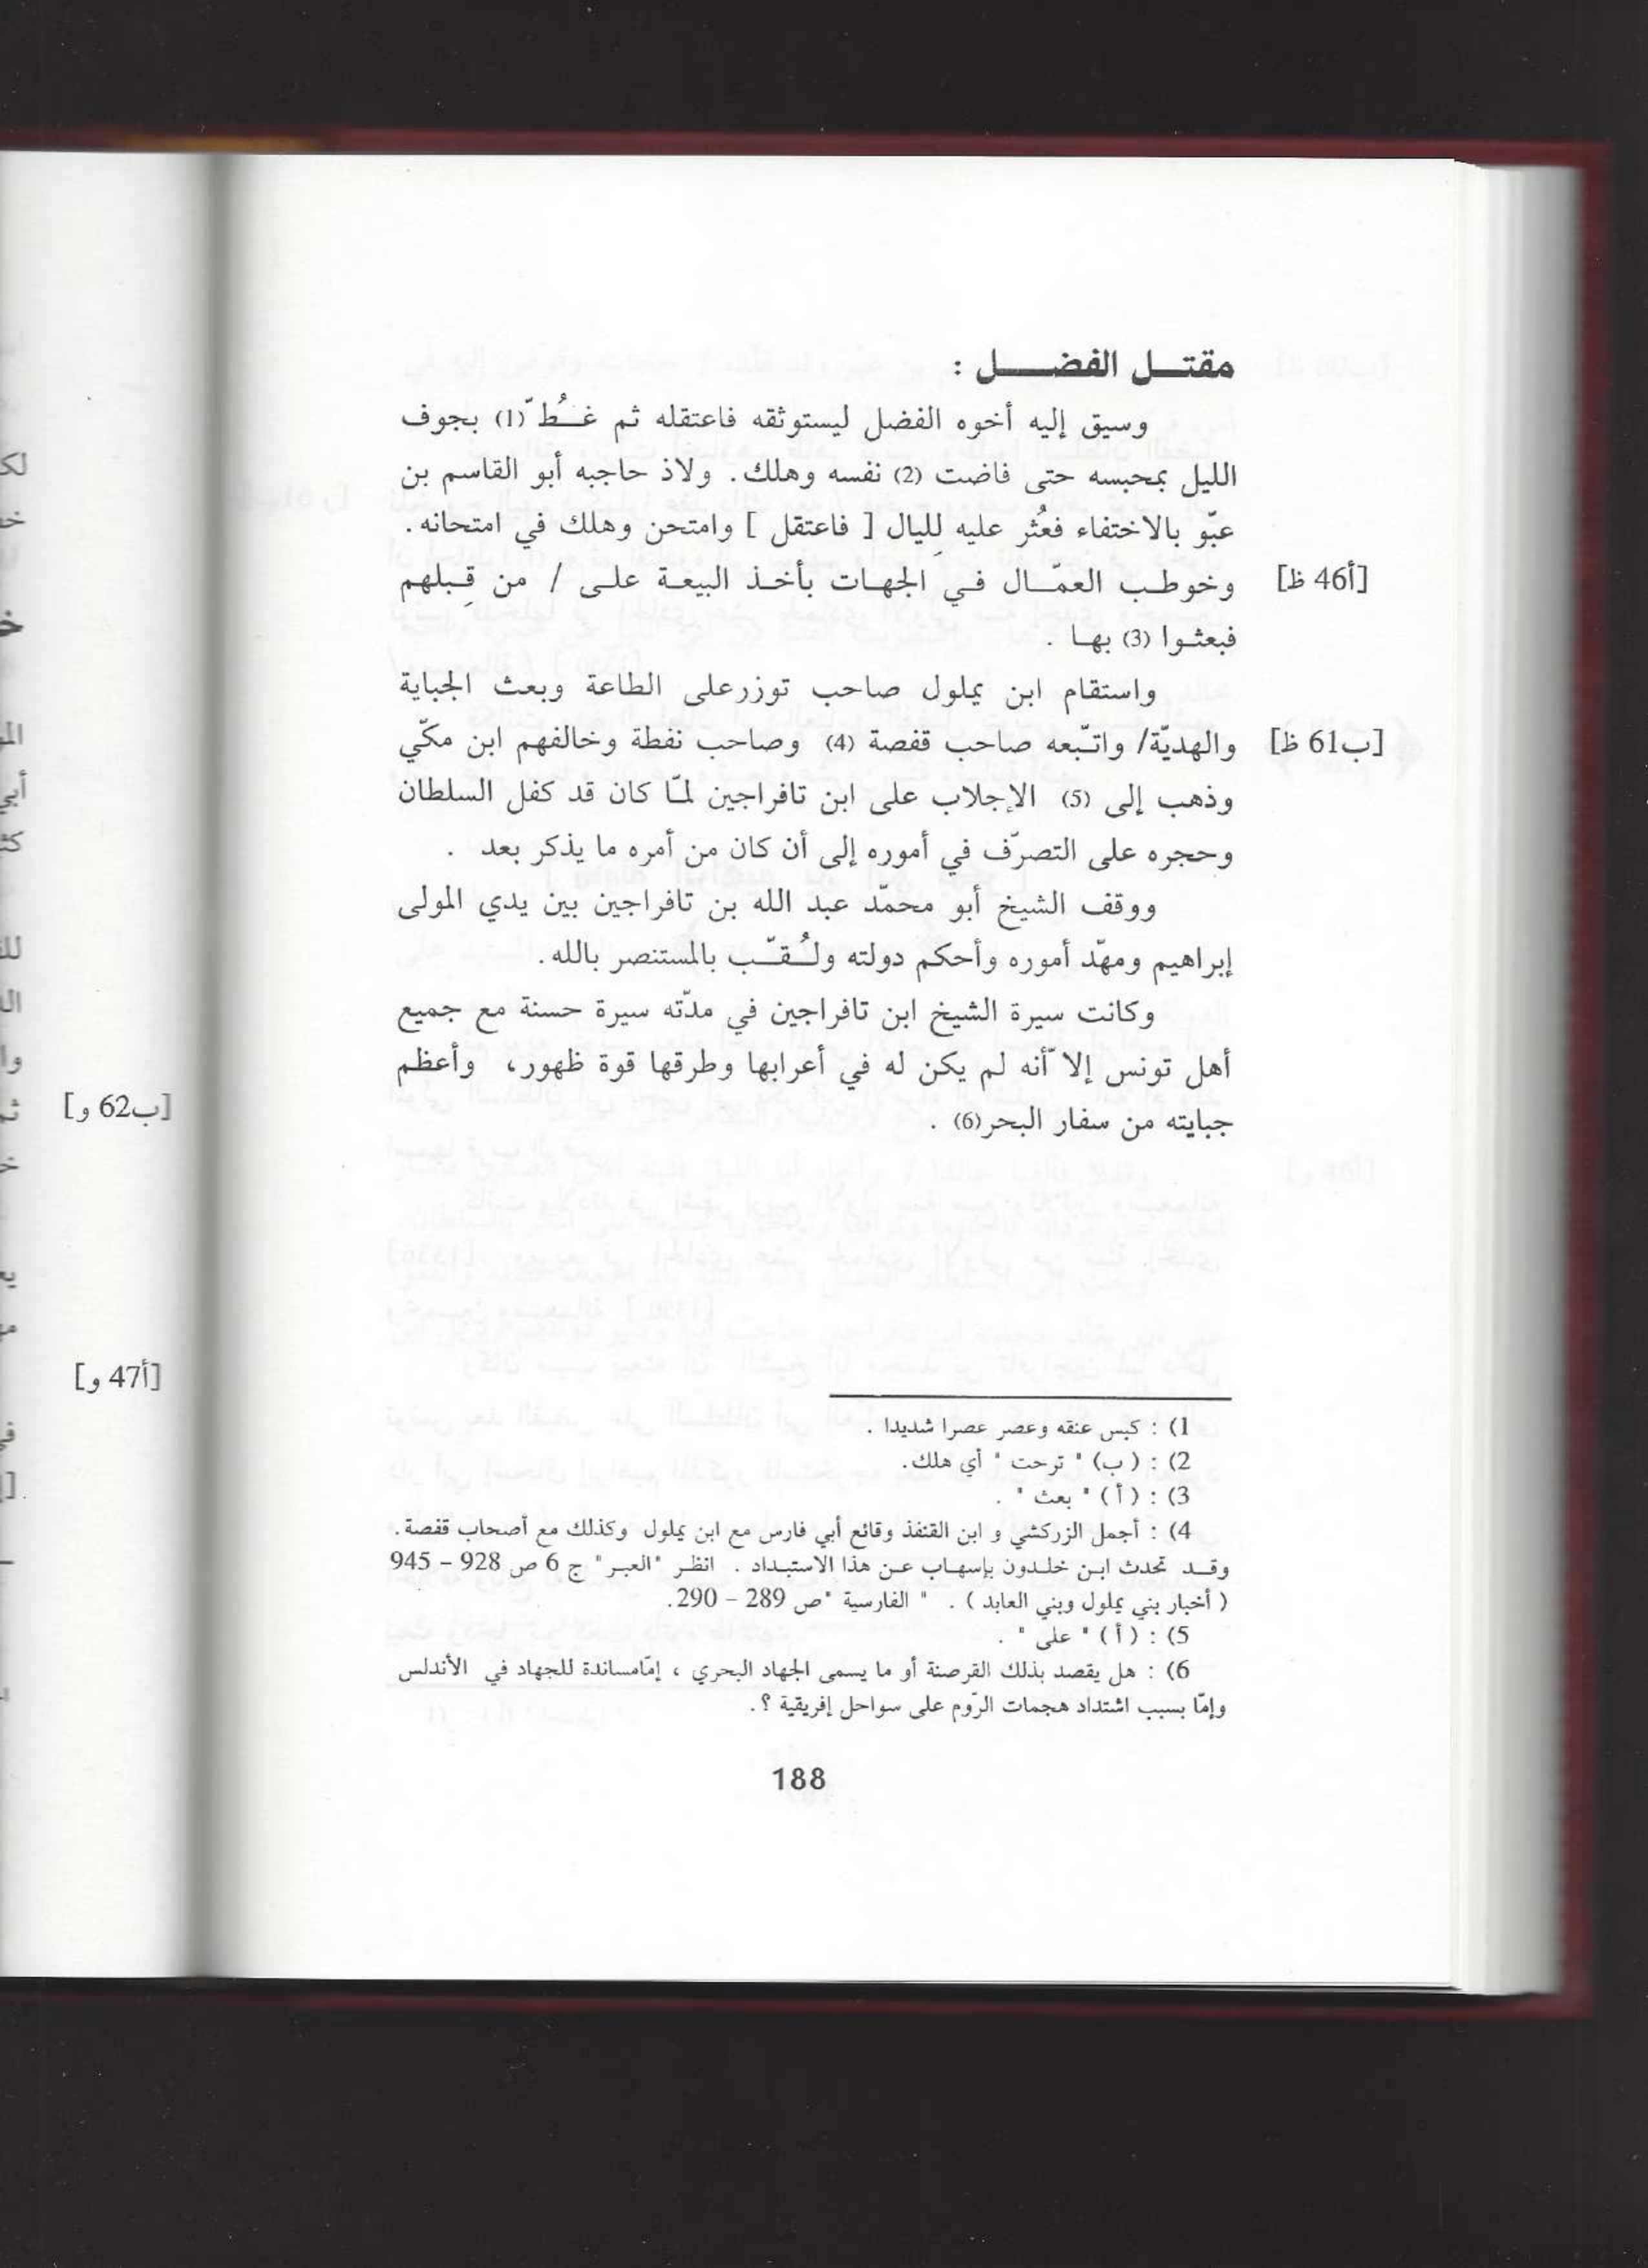 مقتــل الفضــــل :
وسيق إليه أخوه الفضل ليستوثقه فاعتقله ثم غُطّ (1) بجوف
الليل بمحبسه حتى فاضت (2) نفسه وهلك. ولاذ حاجبه أبو القاسم بن
عبّو بالاختفاء فعُثر عليه لِليال [ فاعتقل ] وامتحن وهلك في امتحانه.
[أ46 ظ] وخوطب العمّال في الجهات بأخذ البيعة على / من قِبلهم
فبعثوا (3) بها .
واستقام ابن يملول صاحب توزرعلى الطاعة وبعث الجباية
[ب61 ظ] والهديّة/ واتّبعه صاحب قفصة (4) وصاحب نفطة وخالفهم ابن مكّي
وذهب إلى (5) الإجلاب على ابن تافراجين لمّا كان قد كفل السلطان
وحجره على التصرّف في أموره إلى أن كان من أمره ما يذكر بعد .
ووقف الشيخ أبو محمّد عبد الله بن تافراجين بين يدي المولى
إبراهيم ومهّد أموره وأحكم دولته ولُقّب بالمستنصر بالله.
وكانت سيرة الشيخ ابن تافراجين في مدّته سيرة حسنة مع جميع
أهل تونس إلا ّأنه لم يكن له في أعرابها وطرقها قوة ظهور، وأعظم
جبايته من سفار البحر(6) .
1) : كبس عنقه وعصر عصرا شديدا .
2) : ( ب) " ترحت " أي هلك.
3) : ( أ ) " بعث " .
4) : أجمل الزركشي و ابن القنفذ وقائع أبي فارس مع ابن يملول وكذلك مع أصحاب قفصة.
وقد تحدث ابن خلدون بإسهاب عن هذا الاستبداد . انظر "العبر" ج 6 ص 928 – 945
( أخبار بني يملول وبني العابد ) . " الفارسية "ص 289 – 290.
5) : ( أ ) " على " .
6) : هل يقصد بذلك القرصنة أو ما يسمى الجهاد البحري ، إمّامساندة للجهاد في الأندلس
وإمّا بسبب اشتداد هجمات الرّوم على سواحل إفريقية ؟.
188
[ب62 و]
[أ47 و]